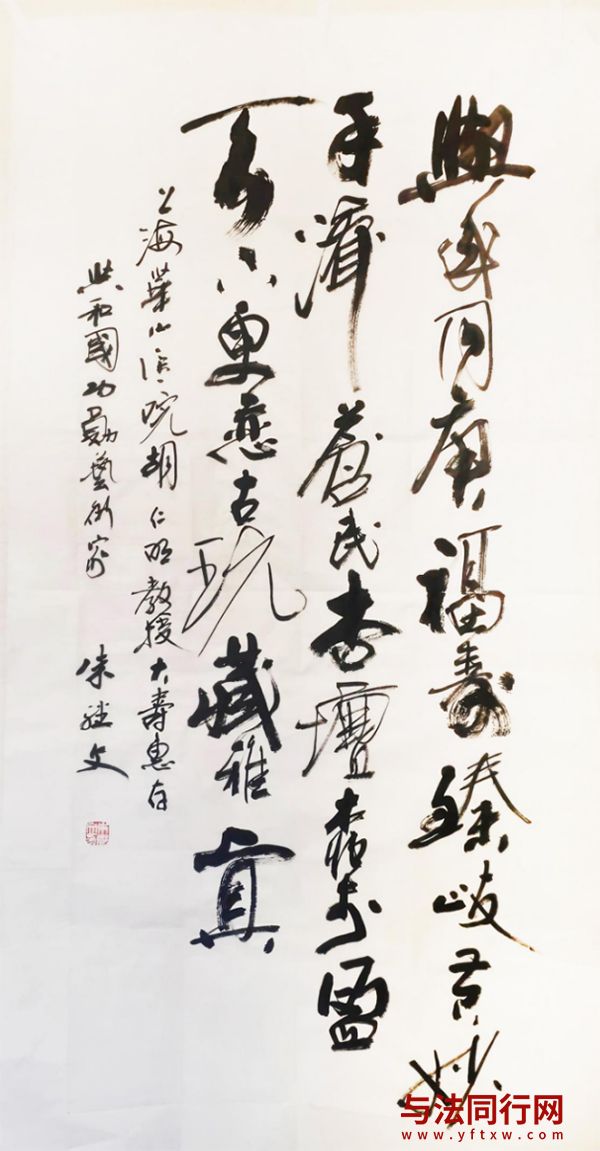 與國同庚福壽臻岐黃妙
手濟蒼民杏壇嘉譽盈
天下更戀古玩藏雅真
上海華山医院胡仁明教授大壽惠存
共和國功勛藝術家 朱文
与法同行网
www.yftxw.com